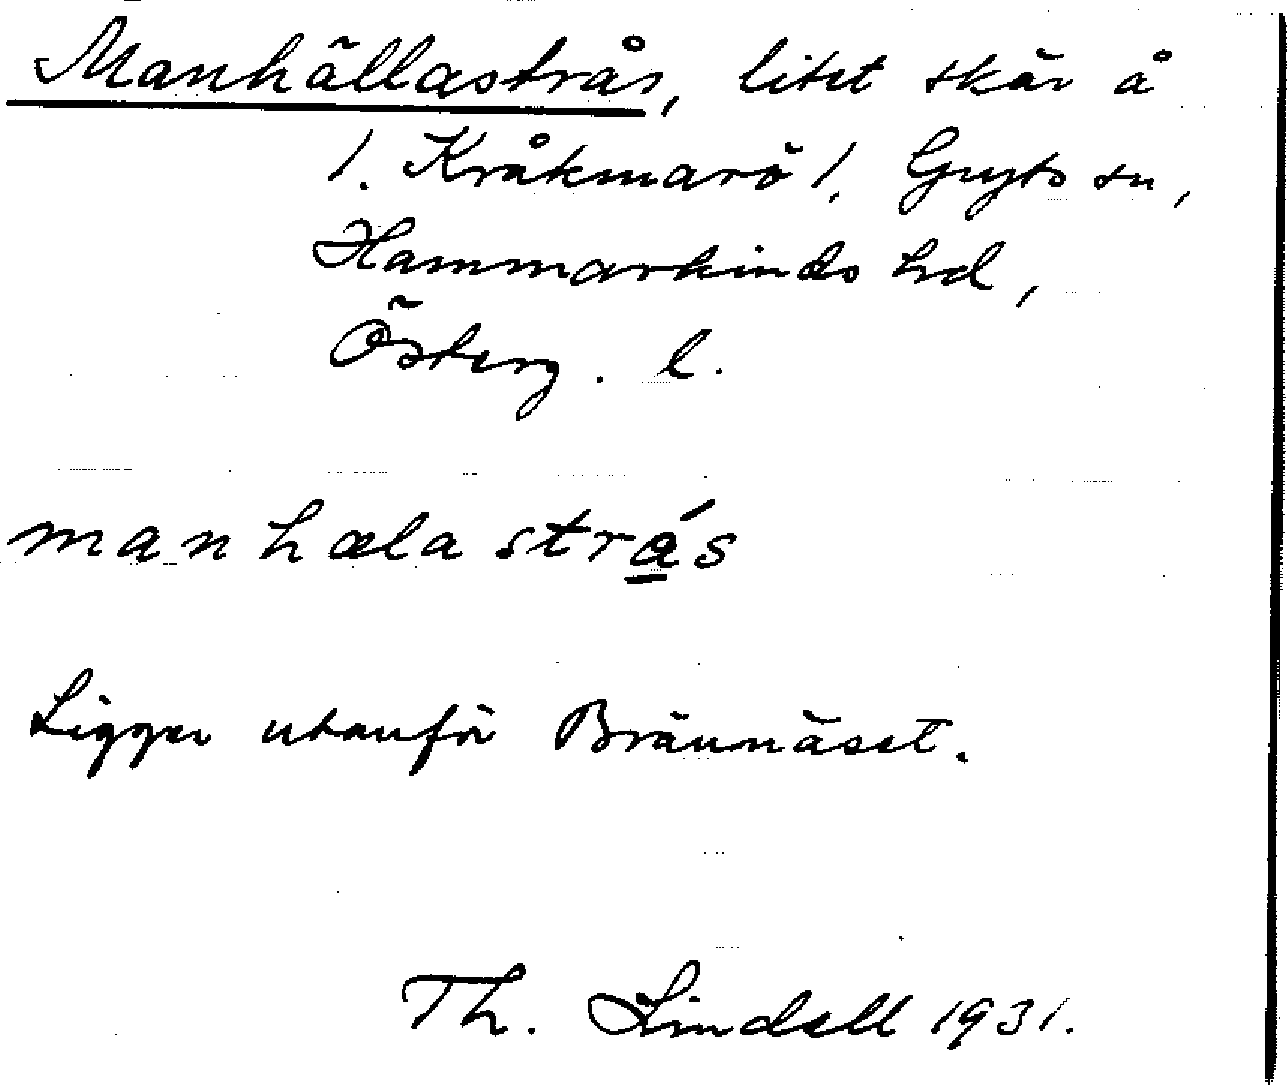 Manhällastrås, litet skär å
1. Kråkmarö 1. Gryts sn,
Hammarkinds hd,
Österg. l.
manhælastrás
Ligger utanför Bränn äset.
Th. Lindell 1931.